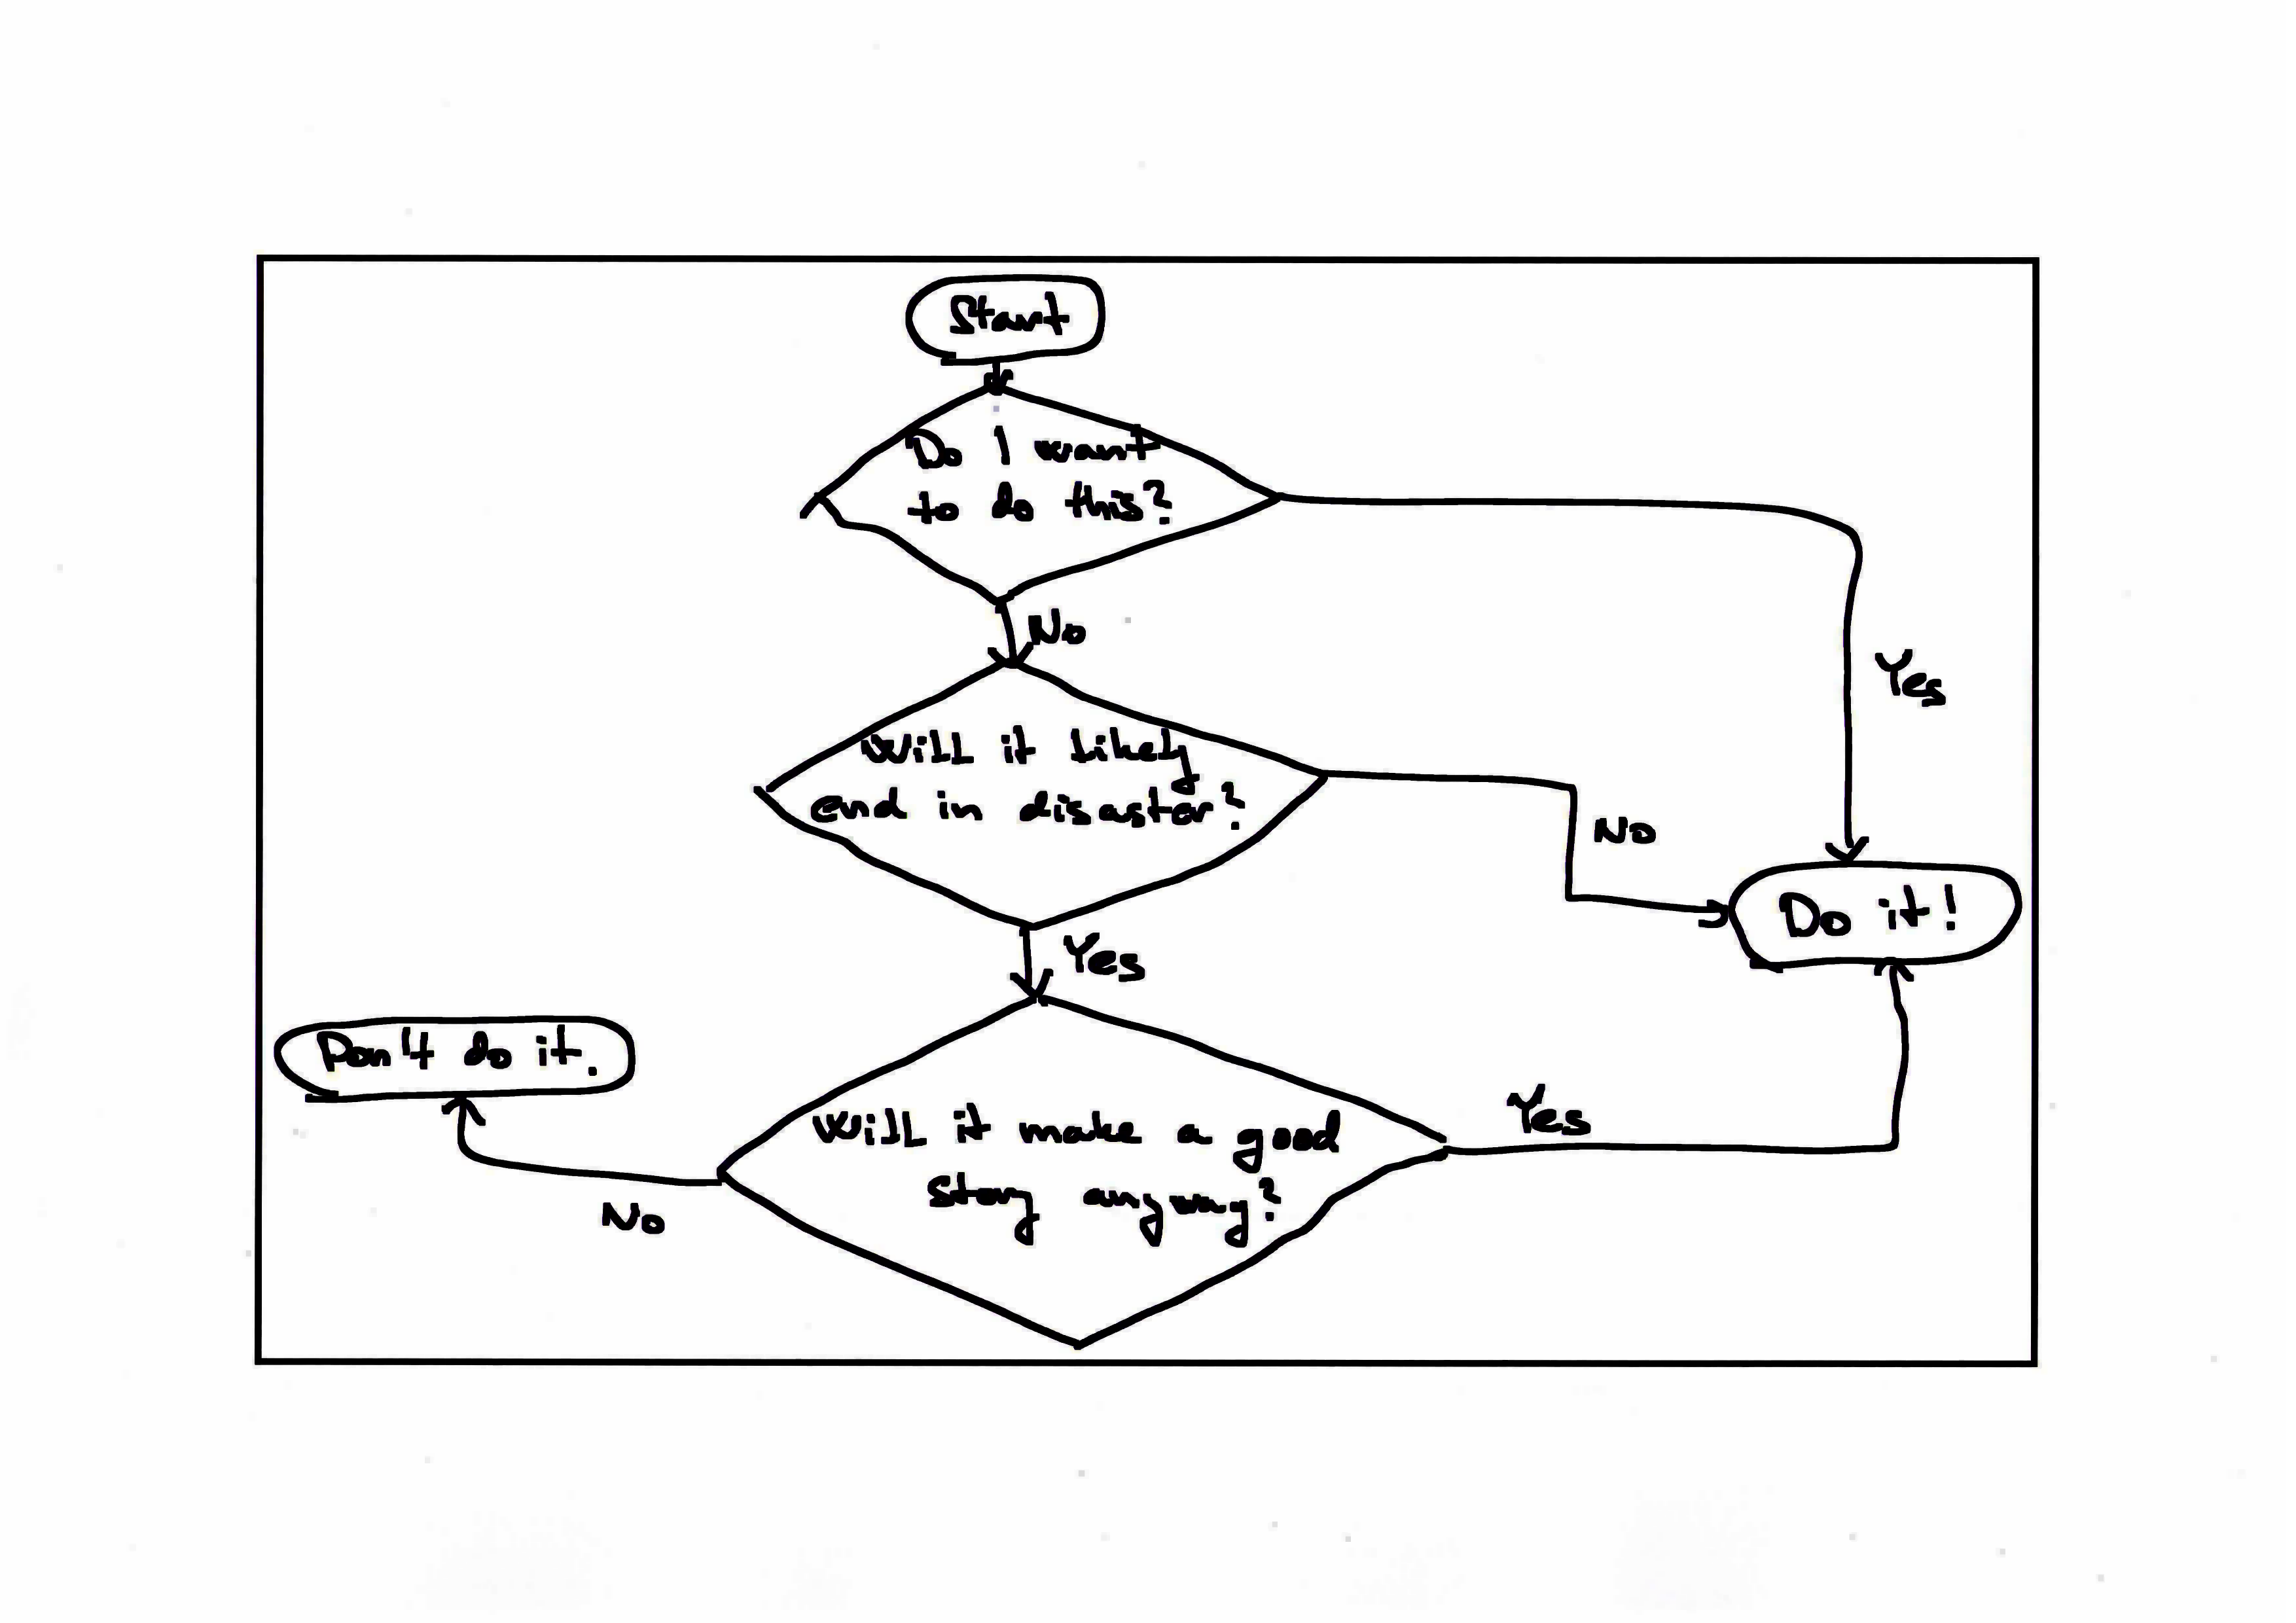 Start
Do I want
to do this?
No
Yes
Will it likely
end in disaster?
No
Do it!
Yes
Don't do it.
Will it make a good
story anyway?
Yes
No